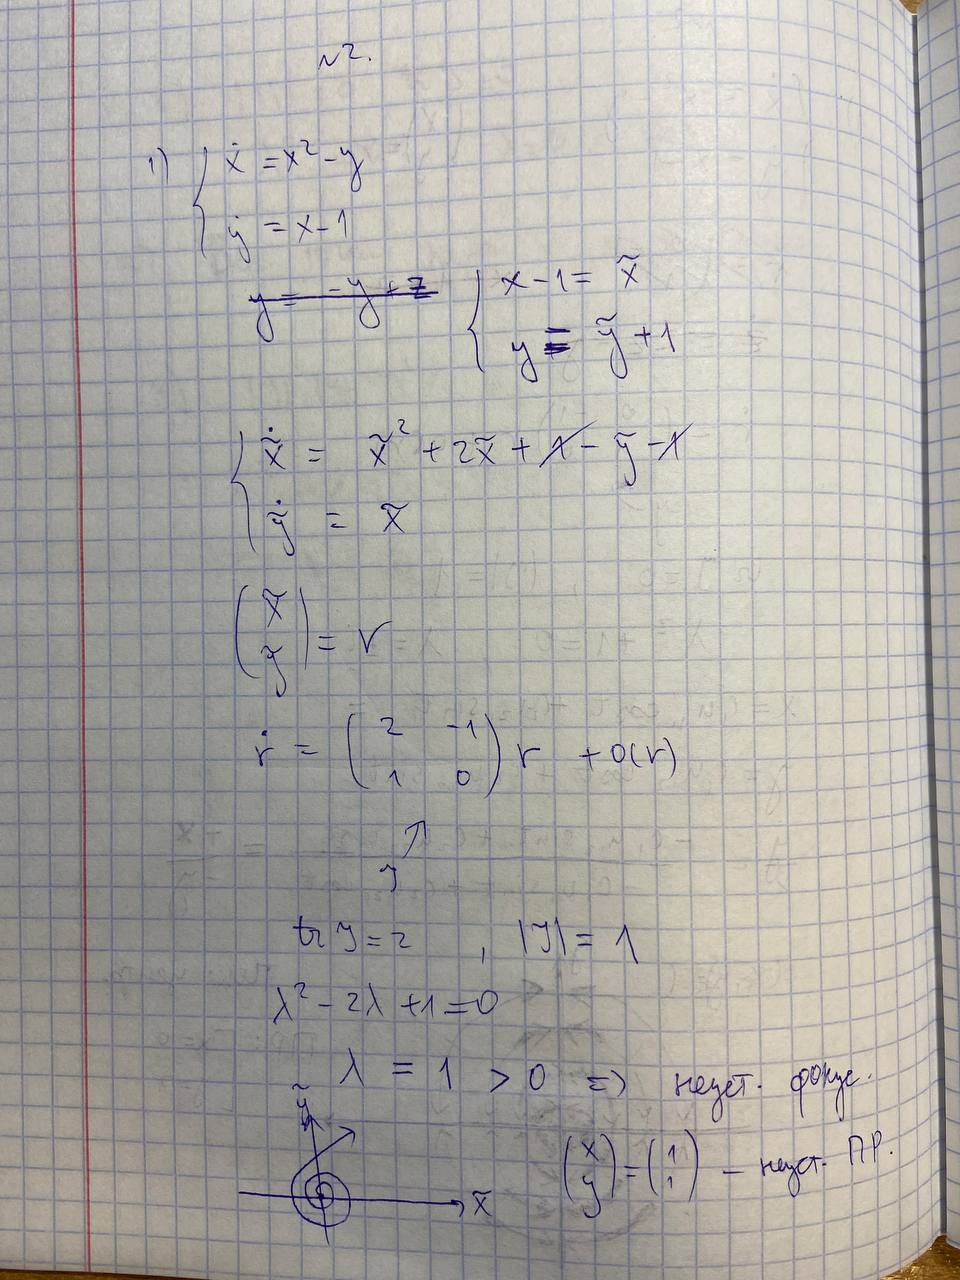 N2.
1) { ẋ = x² - y
ẏ = x - 1
y = -y + z { x - 1 = x̃
y = ỹ + 1
{ x̃̇ = x̃² + 2x̃ + 1 - ỹ - 1
ỹ̇ = x̃
( x̃
ỹ ) = r
ṙ = ( 2 -1
1 0 ) r + o(r)
J
tr J = 2 , |J| = 1
λ² - 2λ + 1 = 0
λ = 1 > 0 => неуст. фокус.
ỹ
x̃
( x
y ) = ( 1
1 ) - неуст. П.Р.